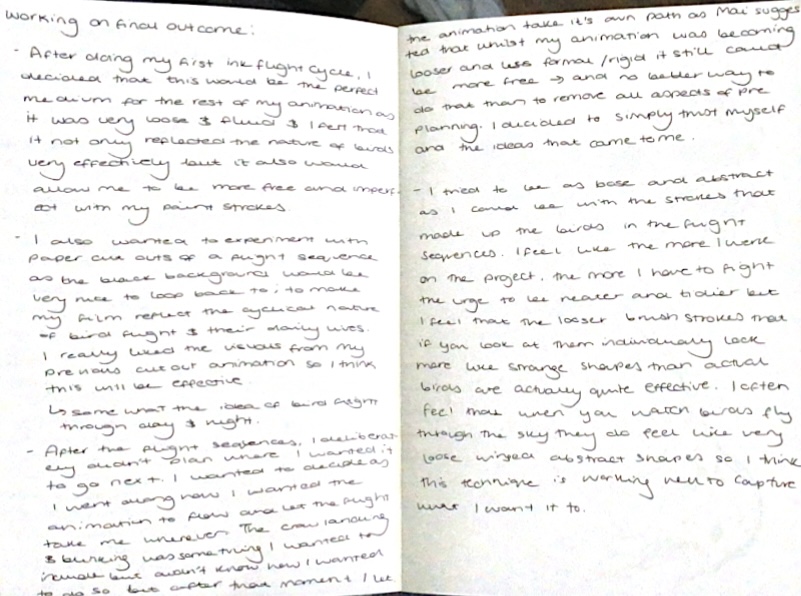 Working on final outcome:
- After doing my first ink flight cycle, I
decided that this would be the perfect
medium for the rest of my animation as
it was very loose & fluid & I felt that
it not only reflected the nature of birds
very effectively but it also would
allow me to be more free and imperf-
ect with my paint strokes.
- I also wanted to experiment with
paper cut outs of a flight sequence
as the black background would be
very nice to loop back to; to make
my film reflect the cyclical nature
of bird flight & their daily lives.
I really liked the visuals from my
previous cut out animation so I think
this will be effective.
↳ somewhat the idea of bird flight
through day & night.
- After the flight sequences, I deliberat-
ely didn't plan where I wanted it
to go next. I wanted to decide as
I went along how I wanted the
animation to flow and let the flight
take me wherever. The crow landing
& was something I wanted to
include but didn't know how I wanted
to do so but after that moment I let
the animation take it's own path as Mai sugges
ted that whilst my animation was becoming
looser and less formal/rigid it still could
be more free → and no better way to
do that than to remove all aspects of pre
planning. I decided to simply trust myself
and the ideas that came to me.
- I tried to be as base and abstract
as I could be with the strokes that
made up the birds in the flight
sequences. I feel like the more I work
on the project, the more I have to fight
the urge to be neater and tidier but
I feel that the looser brush strokes that
if you look at them individually look
more like strange shapes than actual
birds are actually quite effective. I often
feel that when you watch birds fly
through the sky they do feel like very
loose winged abstract shapes so I think
this technique is working well to capture
what I want it to.